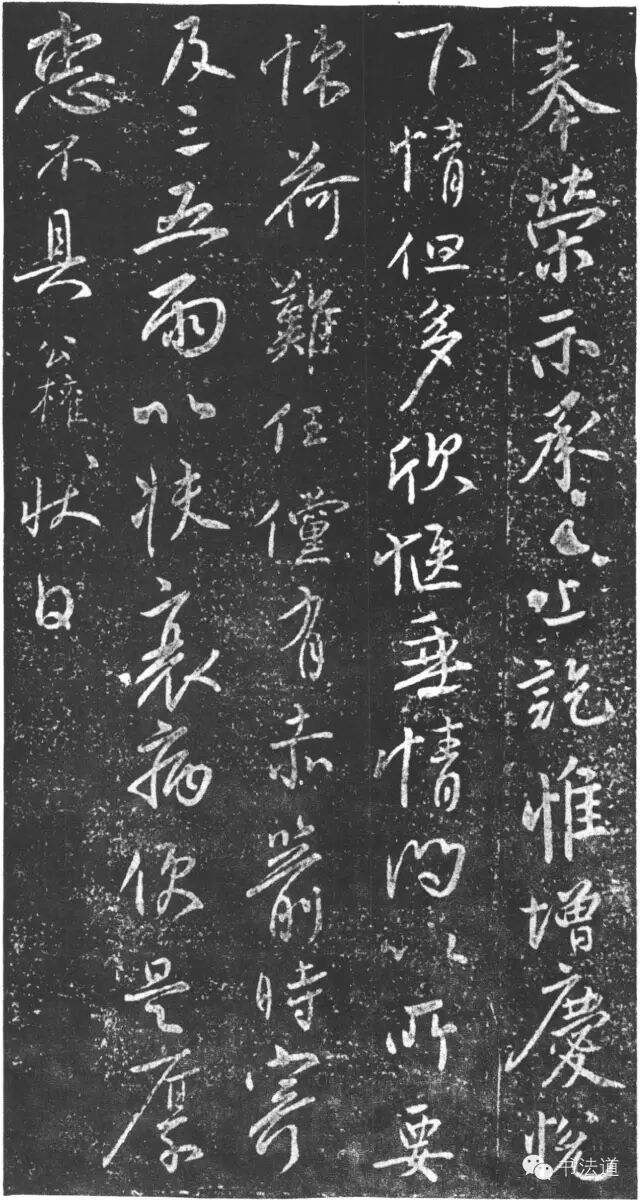 奉榮示承已上訖惟增慶悅
下情但多欣愜垂情問以所要
悚荷難任儻有赤箭時寄
及三五兩以扶衰病便是厚
惠不具公權狀白
书法道